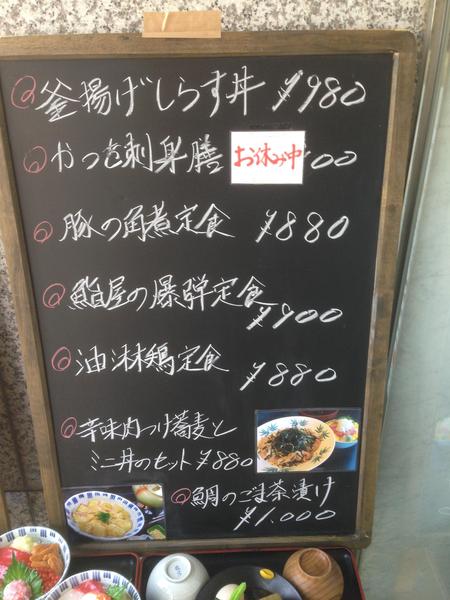 釜揚げしらす丼 ¥980
かつを刺身膳 お休み中 00
豚の角煮定食 ¥880
鮨屋の爆弾定食
¥900
油淋鶏定食
¥880
辛味肉つけ蕎麦と
ミニ丼のセット ¥880
鯛のごま茶漬け
¥1,000